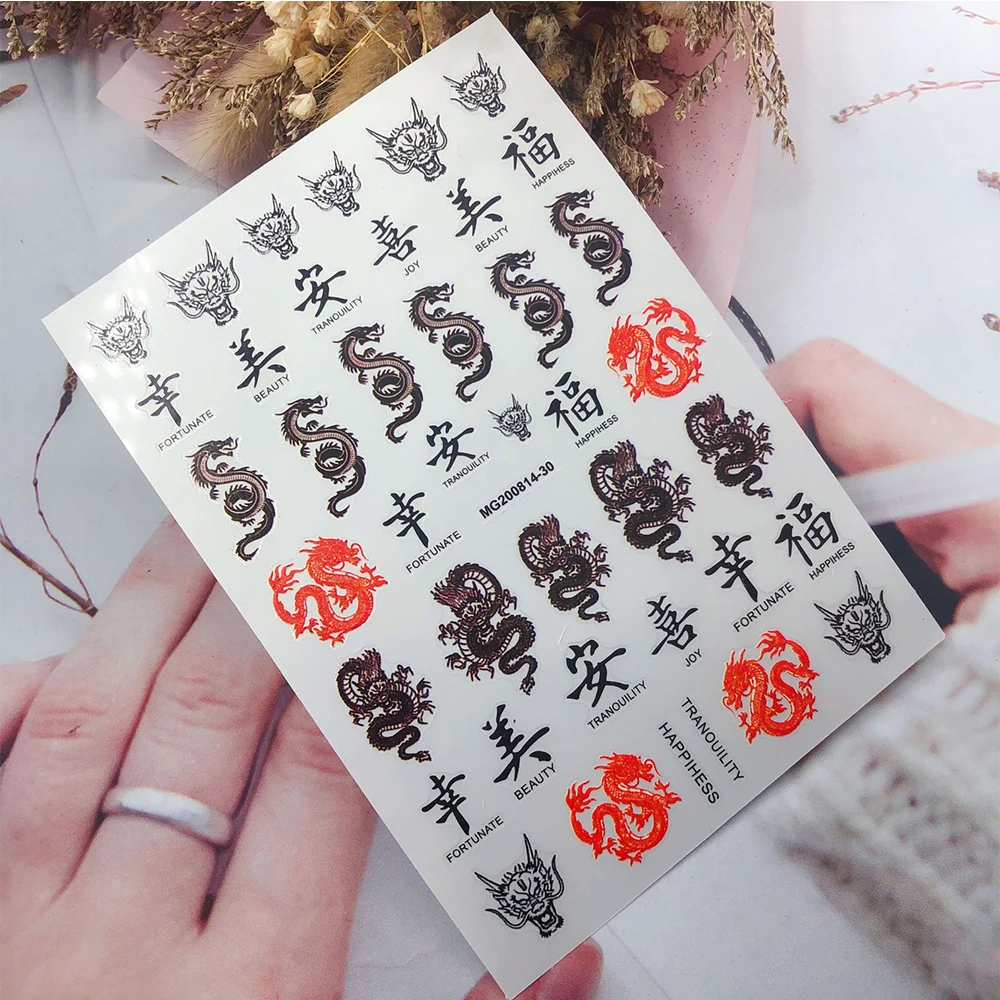 福
HAPPIHESS
美
BEAUTY
喜
JOY
安
TRANOUILITY
美
BEAUTY
幸
FORTUNATE
福
HAPPIHESS
安
TRANOUILITY
幸
FORTUNATE
MG200814-30
福
HAPPIHESS
幸
FORTUNATE
喜
JOY
安
TRANOUILITY
美
BEAUTY
幸
FORTUNATE
TRANOUILITY
HAPPIHESS